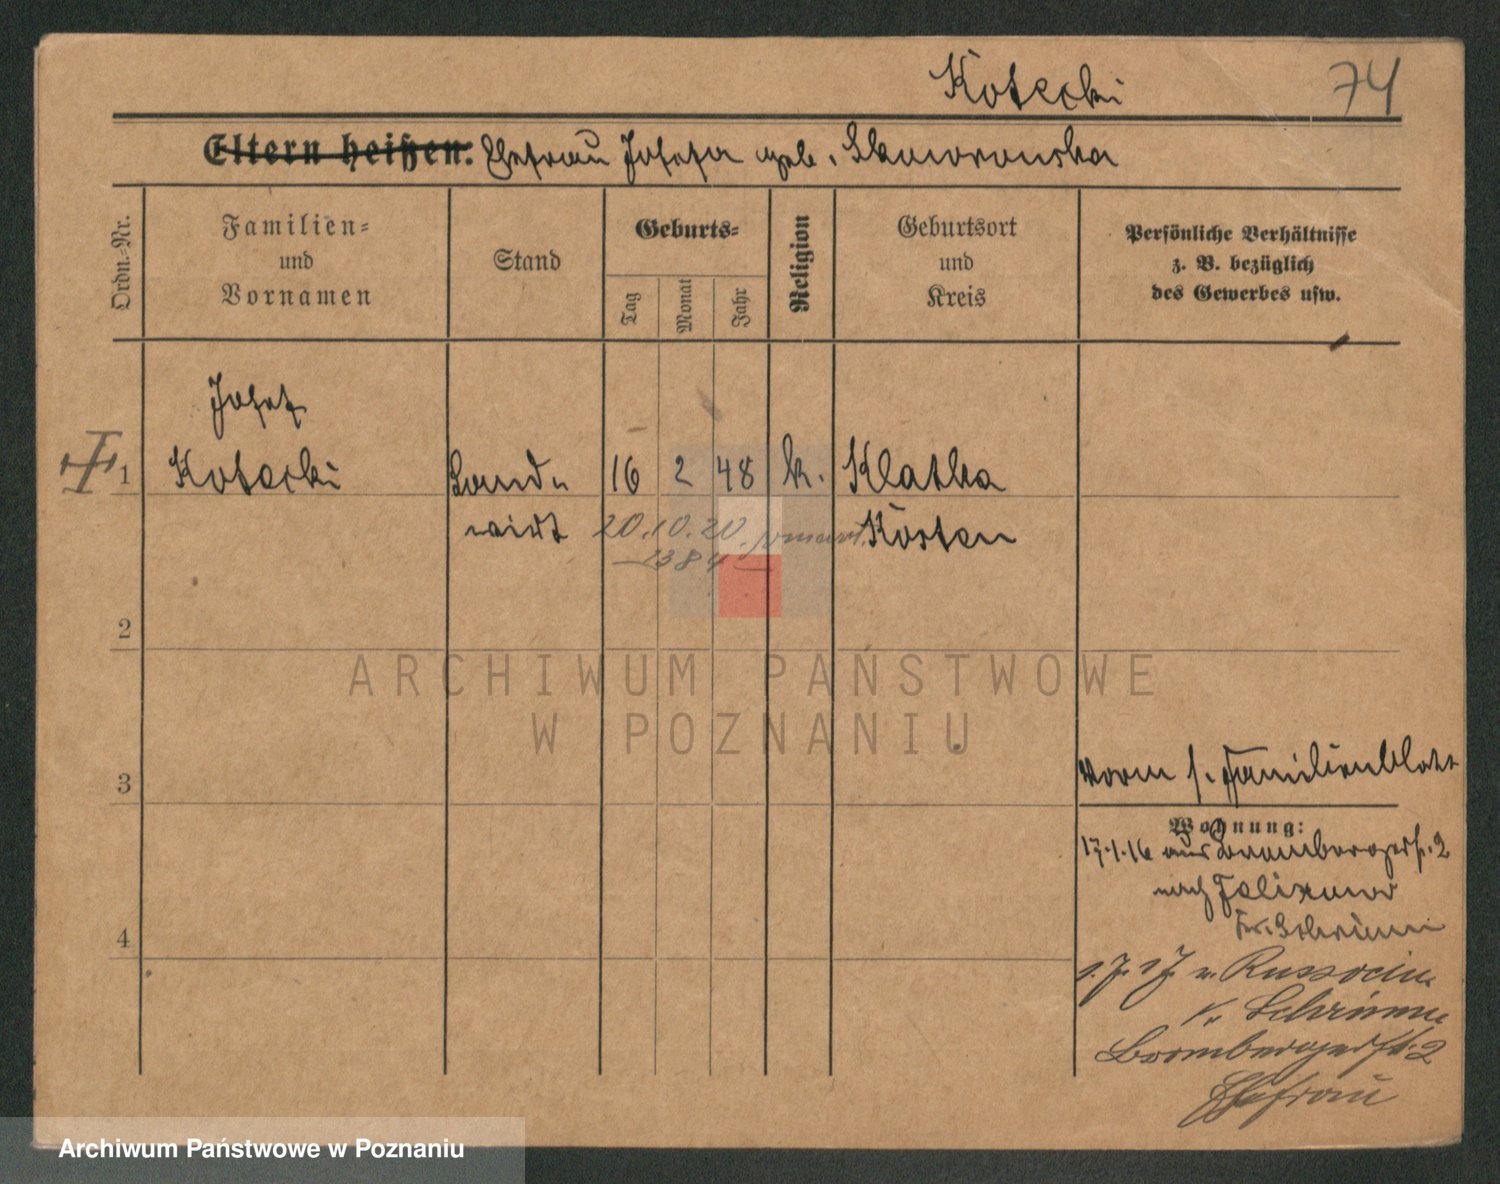 Kotecki 74
Eltern heißen: Ehefrau Josefa geb. Skowronska
Ordn.-Nr.
Familien-
und
Vornamen
Stand
Geburts-
Tag
Monat
Jahr
Religion
Geburtsort
und
Kreis
Persönliche Verhältnisse
z. B. bezüglich
des Gewerbes usw.
Josef
1 Kotecki Land- 16 2 48 k. Klatka
wirt Kosten
20.10.20
1384
2
ARCHIWUM PAŃSTWOWE
W POZNANIU
3
vorm s. Familienblatt
Wohnung:
17.1.16 aus Brombergerst. 2
nach Felixowo
Kr. Schrimm
4
v. Russocin
K. Schrimm
Brombergerst. 2
Ehefrau
Archiwum Państwowe w Poznaniu